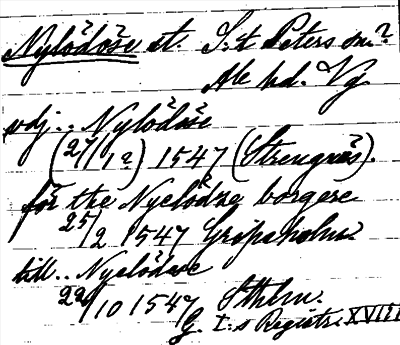 Nylödöse st. S:t Peters sn?
Ale hd. Vg
vdj.. Nylödöse
(27/1?) 1547 (Strengnäs).
för the Nyelödze borgere
25/2 1547 Gripsholm.
till.. Nyelödese
22/10 1547 Sthlm.
G. I:s Registr. XVIII